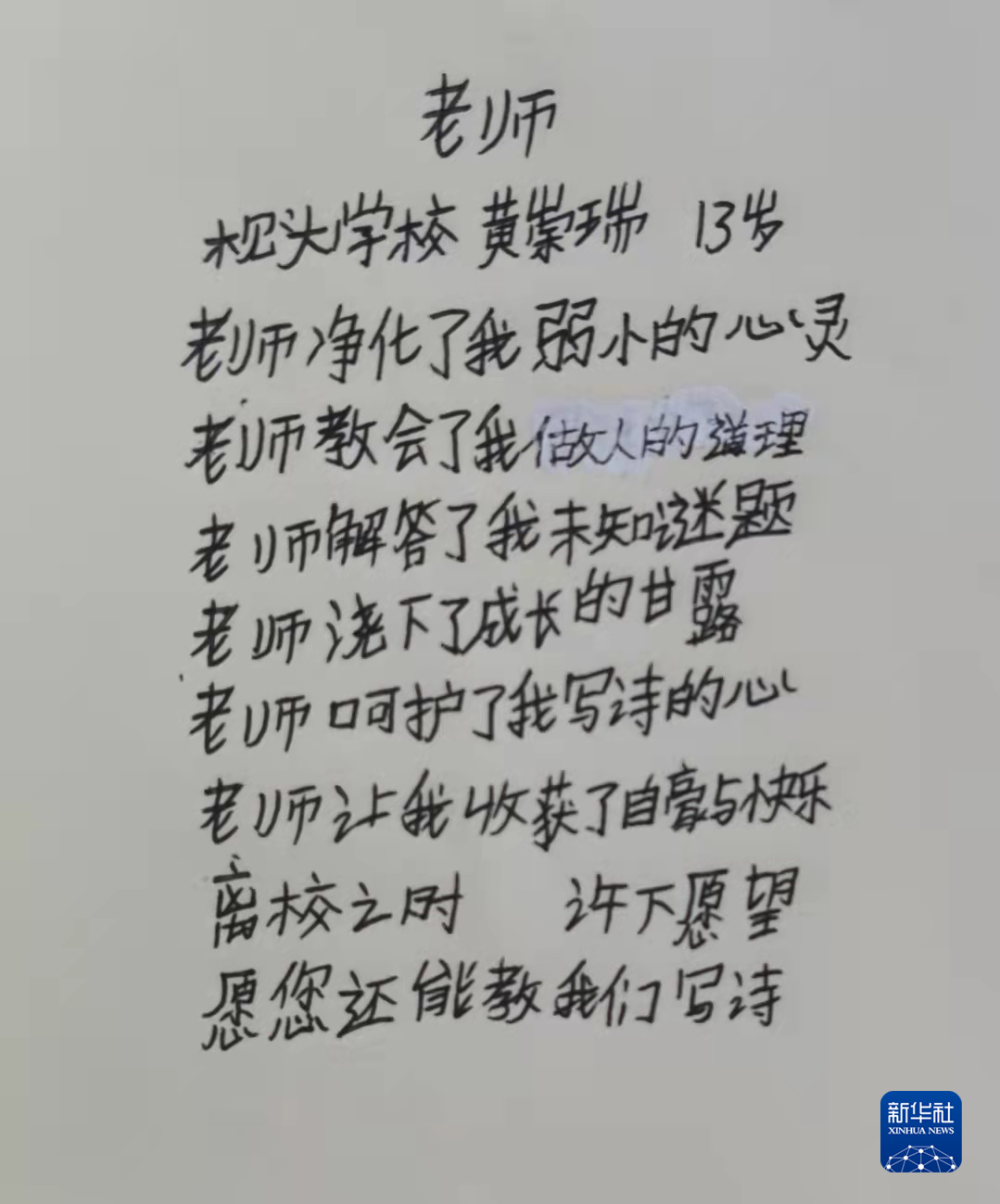 老师
枧头学校 黄崇瑞 13岁
老师净化了我弱小的心灵
老师教会了我做人的道理
老师解答了我未知谜题
老师浇下了成长的甘露
老师呵护了我写诗的心
老师让我收获了自豪与快乐
离校之时 许下愿望
愿您还能教我们写诗
新华社
XINHUA NEWS